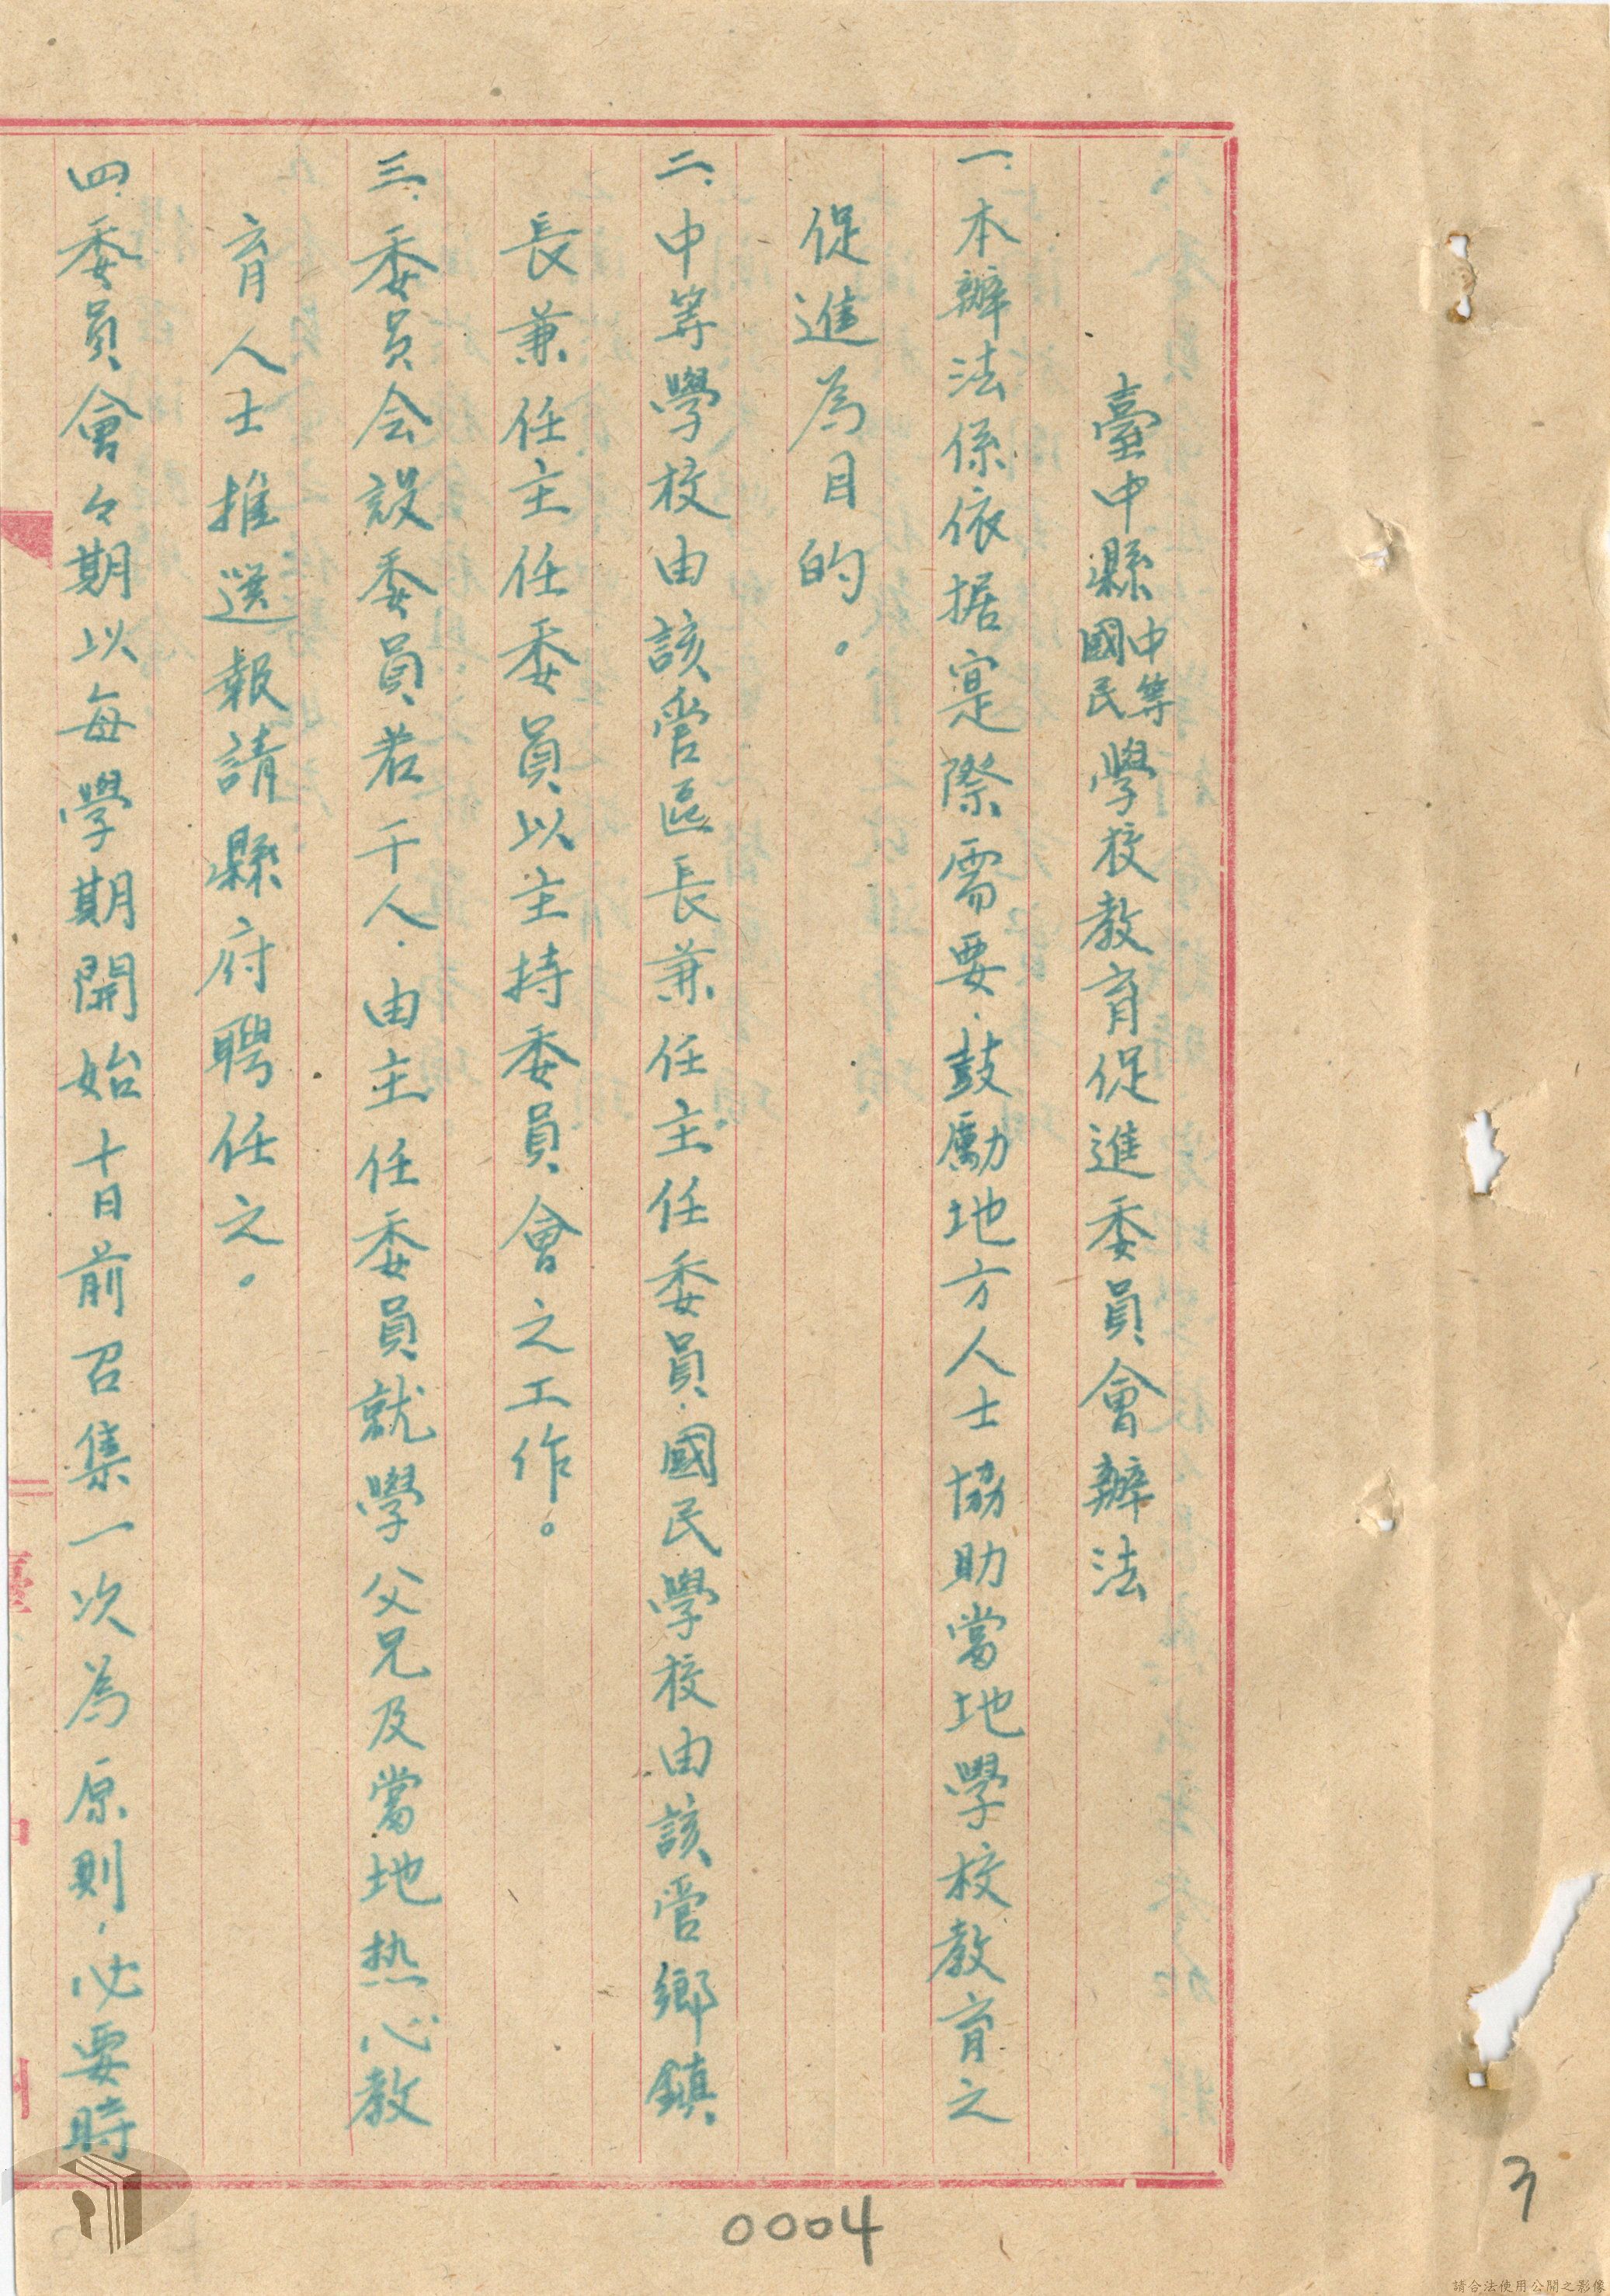 臺中縣中等國民學校教育促進委員會辦法
一.本辦法係依据寔際需要.鼓勵地方人士協助當地學校教育之
促進為目的。
二.中等學校由該管區長兼任主任委員.國民學校由該管鄉鎮
長兼任主任委員以主持委員會之工作。
三.委員会設委員若干人.由主任委員就學父兄及當地热心教
育人士推選報請縣府聘任之。
四.委員會々期以每學期開始十日前召集一次為原則,必要時
0004
3
請合法使用公開之影像